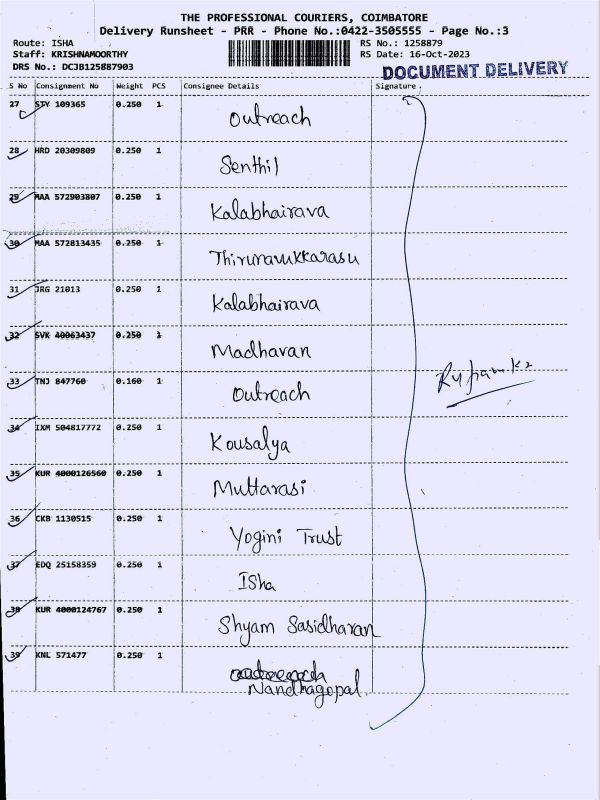 THE PROFESSIONAL COURIERS, COIMBATORE
Delivery Runsheet - PRR - Phone No.:0422-3505555 - Page No.:3
Route: ISHA RS No.: 1258879
Staff: KRISHNAMOORTHY RS Date: 16-Oct-2023
DRS No.: DCJB125887903 DOCUMENT DELIVERY
S No Consignment No Weight PCS Consignee Details Signature
27 STY 109365 0.250 1 Outreach
28 HRD 20309809 0.250 1 Senthil
29 MAA 572903807 0.250 1 Kalabhairava
30 MAA 572813435 0.250 1 Thirunavukkarasu
31 JRG 21013 0.250 1 Kalabhairava
32 SVK 40063437 0.250 1 Madhavan
33 TNJ 847760 0.160 1 Outreach
34 IXM 504817772 0.250 1 Kousalya
35 KUR 4000126560 0.250 1 Muttarasi
36 CKB 1130515 0.250 1 Yogini Trust
37 EDQ 25158359 0.250 1 Isha
38 KUR 4000124767 0.250 1 Shyam Sasidharan
39 KNL 571477 0.250 1 Nandhagopal